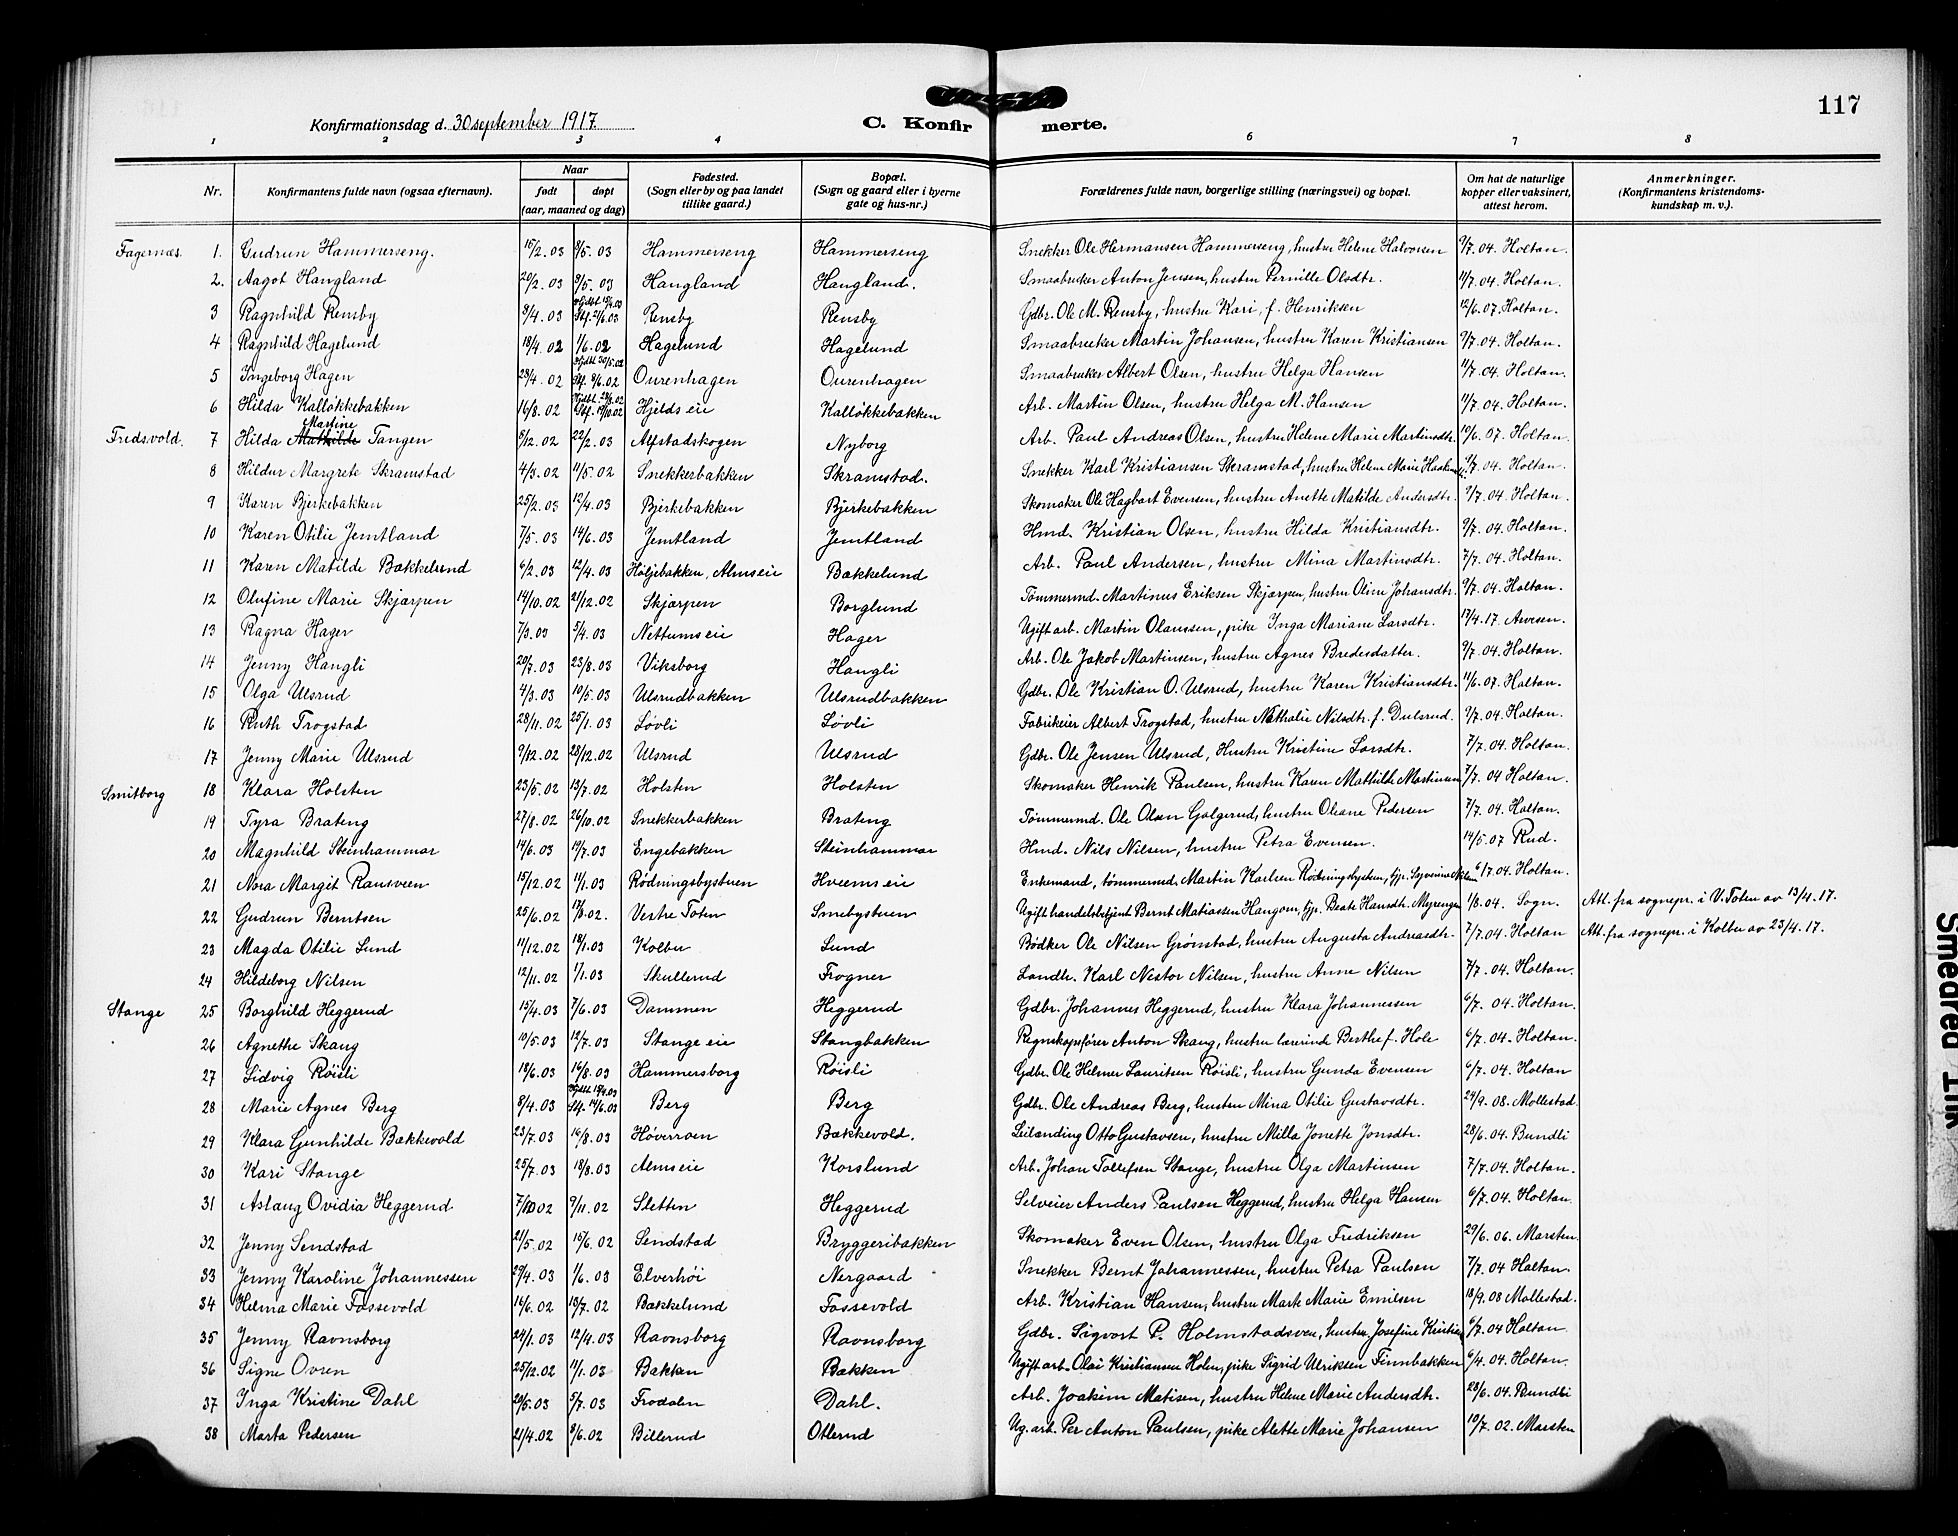 117
Konfirmationsdag d. 30 september 1917.
C. Konfirmerte.
1 2 3 4 6 7 8
Nr. | Konfirmantens fulde navn (ogsaa efternavn). | Naar født døpt (aar, maaned og dag) | Fødested. (Sogn eller by og paa landet tillike gaard.) | Bopæl. (Sogn og gaard eller i byerne gate og hus-nr.) | Forældrenes fulde navn, borgerlige stilling (næringsvei) og bopæl. | Om hat de naturlige kopper eller vaksinert, attest herom. | Anmerkninger. (Konfirmantens kristendoms-kundskap m. v.).
Fagernæs. 1. Gudrun Hammerseng. 15/2.03 8/5.03 Hammerseng Hammerseng Snekker Ole Hermansen Hammerseng, hustru Helene Halvorsen 9/7.04. Holtan.
2. Aagot Hangland 20/2.03 8/5.03 Hangland Hangland. Smaabruker Anton Jensen, hustru Pernille Olsdtr. 11/7.04. Holtan.
3 Ragnhild Rensby 3/4.03 Stf. 21/6.03 Rensby Rensby Gdbr. Ole M. Rensby, hustru Kari, f. Henriksen 12/6.07. Holtan.
4 Ragnhild Hagelund 18/4.02 1/6.02 Hagelund Hagelund Smaabruker Martin Johansen, hustru Karen Kristiansen 9/7.04. Holtan.
5 Ingeborg Hagen 28/4.02 Hjdbt 30/5.02 Stf. 8/6.02 Ourenhagen Ourenhagen Smaabruker Albert Olsen, hustru Helga Hansen 11/7.04. Holtan.
6 Hilda Kalløkkebakken 16/8.02 Hjdbt. 28/8.02 Stf. 19/10.02 Hjelds eie Kalløkkebakken Arb. Martin Olsen, hustru Helga M. Hansen 11/7.04. Holtan.
Fredsvold. 7 Hilda Mathilde Martine Tangen 5/12.02 22/2.03 Alfstadskogen Nyborg Arb. Paul Andreas Olsen, hustru Helene Marie Martinsdtr. 10/6.07. Holtan
8 Hildur Margrete Skramstad 4/3.02 11/5.02 Snekkerbakken Skramstad. Snekker Karl Kristiansen Skramstad, hustru Helene Marie 9/7.04. Holtan.
9 Karen Bjerkebakken 25/2.03 12/4.03 Bjerkebakken Bjerkebakken Skomaker Ole Hagbart Evensen, hustru Anette Matilde Andersdtr. 9/7.04. Holtan.
10 Karen Otilie Jemtland 7/5.03 14/6.03 Jemtland Jemtland Hmd. Kristian Olsen, hustru Hilda Kristiansdtr. 9/7.04. Holtan.
11 Karen Matilde Bakkelund 6/2.03 12/4.03 Høljebakken, Alms eie Bakkelund Arb. Paul Andersen, hustru Mina Martinsdtr. 7/7.04. Holtan.
12 Olufine Marie Skjærpen 14/10.02 21/12.02 Skjærpen Borglund Tømmermd. Martinus Eriksen Skjærpen, hustru Oline Johansdtr. 9/7.04. Holtan.
13 Ragna Hager 7/3.03 5/4.03 Nettums eie Hager Ugift arb. Martin Olaussen, pike Inga Mariane Larsdtr. 17/4.17. Arvesen.
14 Jenny Hangli 20/7.03 23/8.03 Viksborg Hangli Arb. Ole Jakob Martinsen, hustru Agnes Bredesdatter. 9/7.04. Holtan.
15 Olga Ulsrud 4/3.03 10/5.03 Ulsrudbakken Ulsrudbakken Gdbr. Ole Kristian O. Ulsrud, hustru Karen Kristiansdtr. 11/6.07. Holtan.
16 Ruth Trogstad 28/11.02 25/1.03 Løvli Løvli Fabrikeier Albert Trogstad, hustru Nathalie Nilsdtr. f. Dulsrud. 9/7.04. Holtan.
17 Jenny Marie Ulsrud 9/12.02 28/12.02 Ulsrud Ulsrud Gdbr. Ole Jensen Ulsrud, Hustru Kristine Larsdtr. 7/7.04. Holtan.
Smitborg 18 Klara Holsten 23/5.02 13/7.02 Holsten Holsten Skomaker Henrik Paulsen, hustru Karen Mathilde Martinsen 7/7.04 Holtan.
19 Tyra Brateng 27/8.02 26/10.02 Snekkerbakken Brateng Tømmermd. Ole Olsen Galgerud, hustru Oleane Pedersen 7/7.04. Holtan.
20 Magnhild Steinhammar 14/6.03 19/7.03 Engebakken Steinhammar Hmd. Nils Nilsen, hustru Petra Evensen. 14/5.07 Rud.
21 Nora Margit Rausveen 15/12.02 11/1.03 Rødningsbystuen Hveems eie Enkemand, tømmermd. Martin Karlsen Rødningsbystuen, 6/7.04. Holtan.
22 Gudrun Berntsen 25/6.02 17/8.02. Vestre Toten Smebystuen Ugift handelsbetjent Bernt Matiassen Hangom, tjp. Beate Hansdtr. Myrengen 1/8.04. Sogn. Att. fra sognepr. i V. Toten av 13/4.17.
23 Magda Otilie Lund 11/12.02 18/1.03 Kolbu Lund Bødker Ole Nilsen Grønstad, hustru Augusta Andreasdtr. 7/7.04. Holtan Att. fra sognepr. i Kolbu av 23/4.17.
24 Hildeborg Nilsen 12/11.02 1/1.03 Skullerud Frogner Landh. Karl Nestor Nilsen, hustru Anne Nilsen 7/7.04. Holtan.
Stange 25 Borghild Heggerud 15/4.03 7/6.03 Dammen Heggerud Gdbr. Johannes Heggerud, hustru Klara Johannessen 6/7.04. Holtan.
26 Agnethe Skang 10/5.03 12/7.03 Stange eie Stangbakken Regnskapsfører Anton Skang, hustru lærerinde Berthe f. Hole 6/7.04. Holtan.
27 Lidvig Røisli 18/6.03 16/8.03 Hammersborg Røisli Gdbr. Ole Helmer Lauritsen Røisli, hustru Gunda Evensen 6/7.04. Holtan
28 Marie Agnes Berg 8/4.03 Stf. 14/6.03 Berg Berg Gdbr. Ole Andreas Berg, hustru Mina Otilie Gustavsdtr. 24/9.08. Mollestad.
29 Klara Gunhilde Bakkevold 23/7.03 16/8.03 Høverroen Bakkevold. Leilanding Otto Gustavsen, hustru Milla Jonette Jonsdtr. 28/6.04. Bundli
30 Kari Stange 25/7.03 18/8.03 Alms eie Korslund Arb. Johan Tollefsen Stange, hustru Olga Martinsen 7/7.04. Holtan.
31 Aslaug Ovidia Heggerud 7/10 02 9/11.02 Sletten Heggerud Selveier Anders Paulsen Heggerud, hustru Helga Hansen 6/7.04. Holtan.
32 Jenny Sendstad 21/5.02 15/6.02 Sendstad Bryggeribakken Skomaker Even Olsen, hustru Olga Fredriksen 29/6.06. Marsten.
33 Jenny Karoline Johannessen 29/4.03 1/6.03 Elverhöi Nergaard Snekker Bernt Johannessen, hustru Petra Paulsen 7/7.04 Holtan.
34 Helma Marie Fossevold 16/6.02 13/7.02 Bakkelund Fossevold Arb. Kristian Hansen, hustru Mark Marie Emilsen 18/9.08 Mollestad.
35 Jenny Ravnsborg 24/1.03 12/4.03 Ravnsborg Ravnsborg Gdbr. Sigvart P. Holmstadsven, hustru Josefine 6/7.04 Holtan
36 Signe Ovren 25/12.02 11/1.03 Bakken Bakken Ugift arb. Olai Kristiansen Holm, pike Sigrid Ulriksen Finnbakken 6/4.04. Holtan.
37 Inga Kristine Dahl 20/5.03 5/7.03 Frodalen Dahl. Arb. Joakim Matisen, hustru Helene Marie Andersdtr. 28/6.04. Bundli
38 Marta Pedersen 21/4.02 8/6.02 Billerud Otterud Ug. arb. Per Anton Paulsen, pike Alette Marie Johansen 10/7.02. Marsten
Smedrud